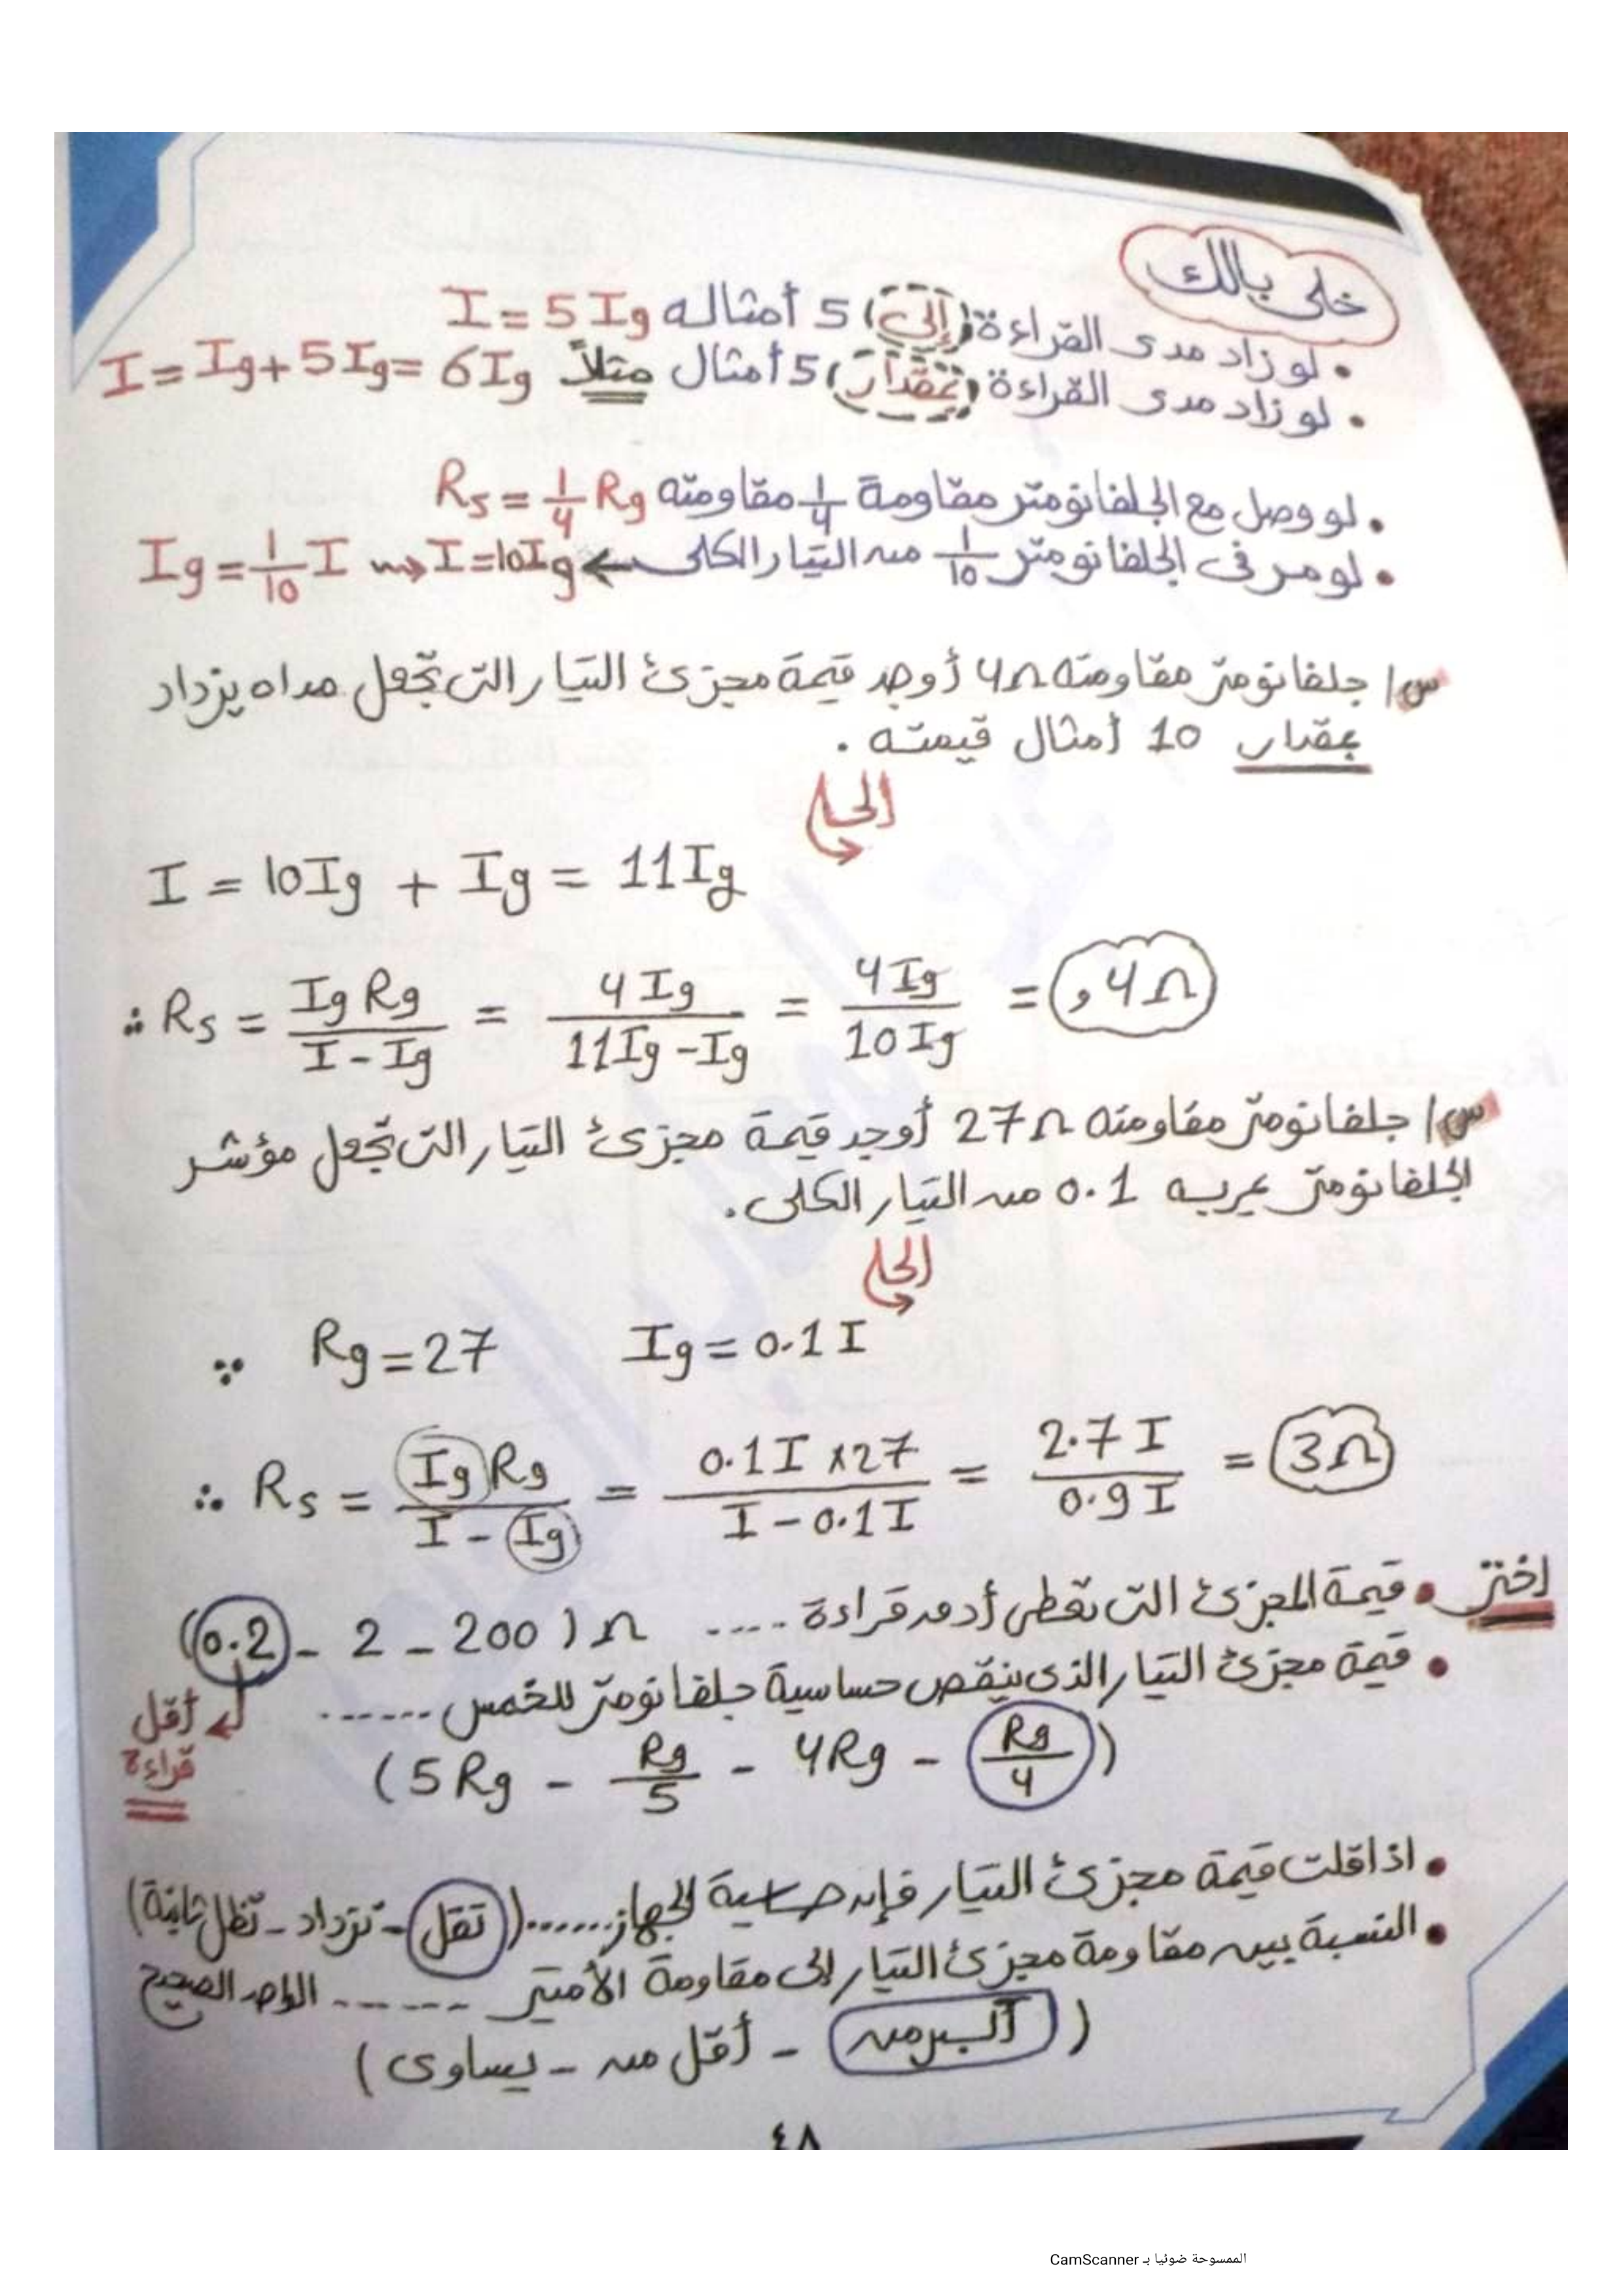 خلى بالك
• لو زاد مدى القراءة (إلى) 5 أمثاله I = 5 Ig
• لو زاد مدى القراءة (بمقدار) 5 أمثال مثلاً I = Ig + 5 Ig = 6 Ig
• لو وصل مع الجلفانومتر مقاومة 1/4 مقاومته Rs = 1/4 Rg
• لو مر فى الجلفانومتر 1/10 من التيار الكلى ← Ig = 1/10 I ⇝ I = 10 Ig
س/ جلفانومتر مقاومته 4Ω أوجد قيمة مجزئ التيار التى تجعل مداه يزداد
بمقدار 10 أمثال قيمته .
الحل
I = 10Ig + Ig = 11Ig
∴ Rs = Ig Rg / I - Ig = 4 Ig / 11Ig - Ig = 4 Ig / 10 Ig = ,4Ω
س/ جلفانومتر مقاومته 27Ω أوجد قيمة مجزئ التيار التى تجعل مؤشر
الجلفانومتر يمر به 0.1 من التيار الكلى.
الحل
∵ Rg = 27 Ig = 0.1 I
∴ Rs = Ig Rg / I - Ig = 0.1 I x 27 / I - 0.1 I = 2.7 I / 0.9 I = 3Ω
اختر • قيمة المجزئ التى تعطى أدق قراءة .... (0.2 - 2 - 200) Ω
• قيمة مجزئ التيار الذى ينقص حساسية جلفانومتر للخمس ......
أقل
قراءة
(5Rg - Rg/5 - 4Rg - Rg/4)
• اذا قلت قيمة مجزئ التيار فإن حساسية الجهاز ...... (تقل - تزداد - تظل ثابتة)
• النسبة بين مقاومة مجزئ التيار إلى مقاومة الأميتر ...... الواحد الصحيح
(أكبر من - أقل من - يساوى)
٤٨
الممسوحة ضوئيا بـ CamScanner